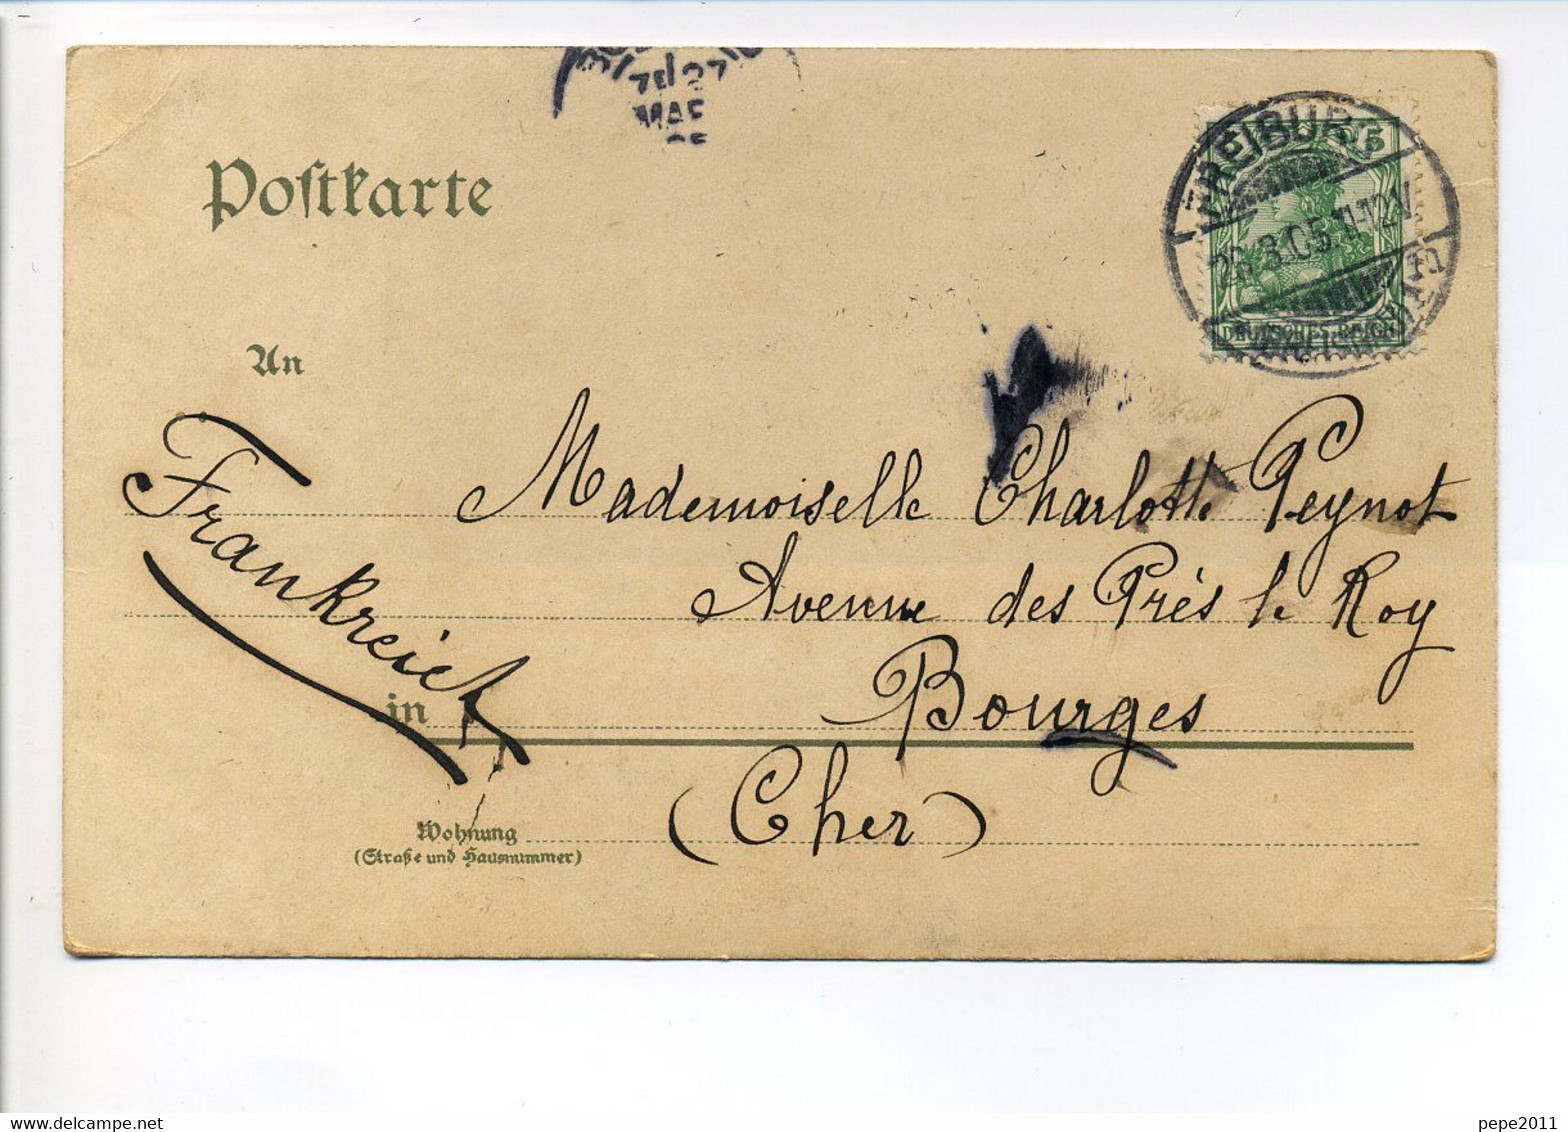 Postkarte
FREIBURG
26.3.05.11-12V.
5
DEUTSCHES REICH
MAR
An
Frankreich
Mademoiselle Charlotte Peynot
Avenue des Prés le Roy
in
Bourges
(Cher)
Wohnung
(Straße und Hausnummer)
pepe2011